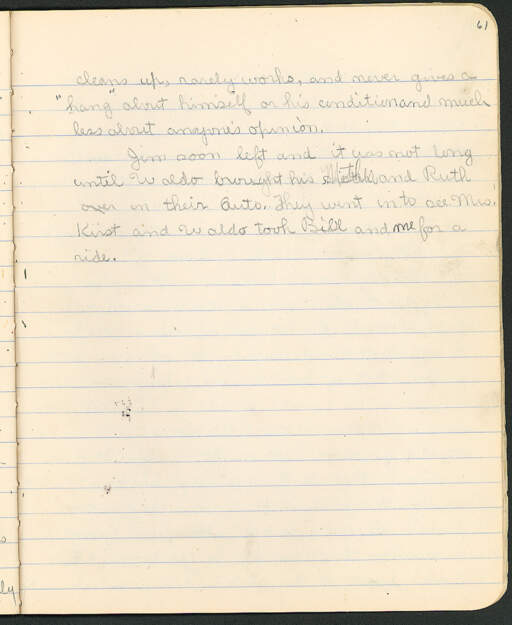 61
cleans up, rarely works, and never gives a
"hang" about himself or his condition and much
less about anyone's opinion.
Jim soon left and it was not long
until Waldo brought his and Ruth
over in their Auto. They went in to see Mrs.
Kirst and Waldo took Bill and me for a
ride.
ly